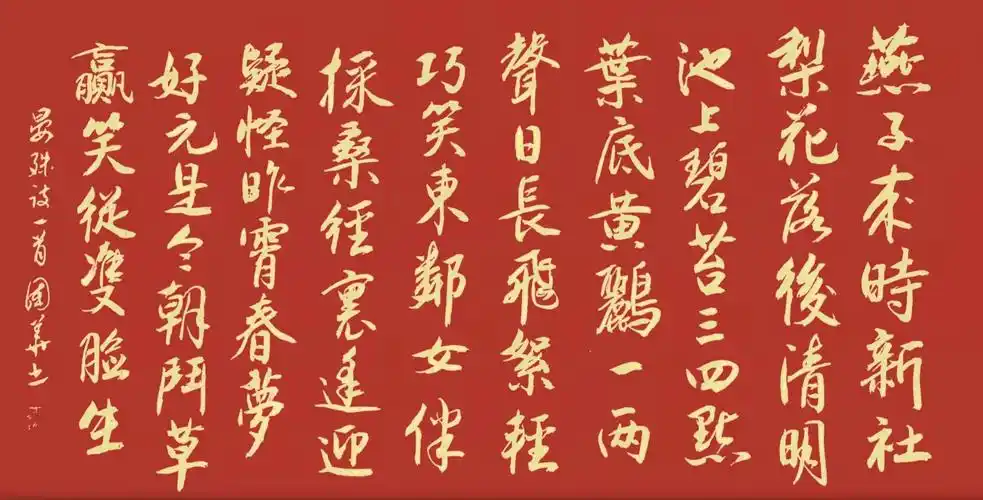 燕子來時新社
梨花落後清明
池上碧苔三四點
葉底黄鸝一兩
聲日長飛絮輕
巧笑東鄰女伴
採桑徑裏逢迎
疑怪昨宵春夢
好元是今朝鬥草
贏笑從雙臉生
晏殊詞一首國華書